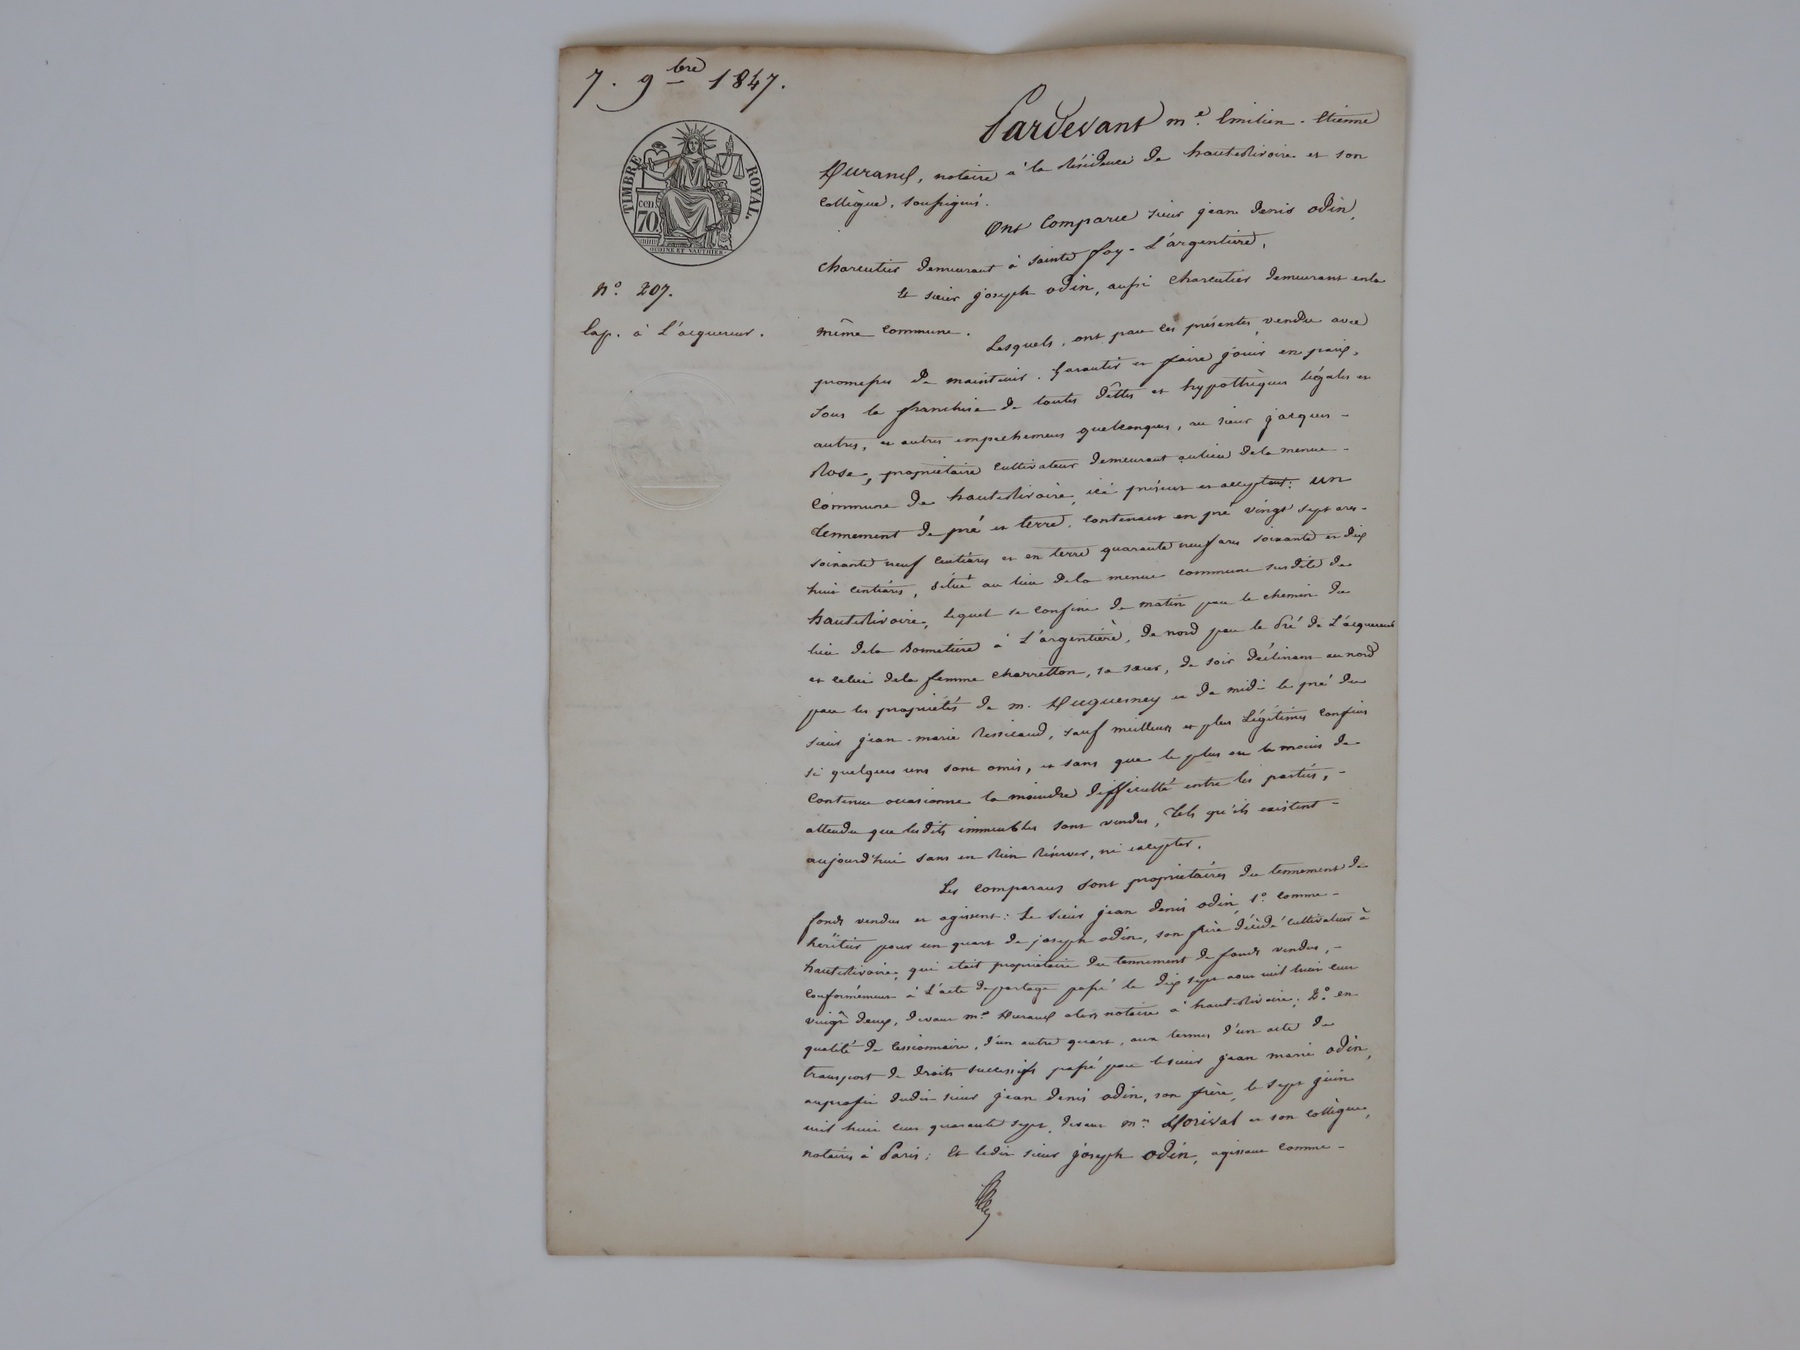 7. 9bre 1847.
TIMBRE ROYAL.
cen 70
N°. 207.
Exp. à L'acquereur.
Pardevant me. Emilien-Etienne
Durand, notaire à la Résidence de hauterivoire et son
Collègue, soussignés.
Ont Comparu sieur jean denis odin,
Charcutier demeurant à Sainte foy-L'argentière,
Et sieur joseph odin, aussi charcutier demeurant enla
même commune.
Lesquels, ont par ces présentes, vendu avec
promesse de maintenir. Garantir et faire jouir en paix,
sous la franchise de toutes dêttes et hypothèques légales et
autres, et autres empechemens quelconques, au sieur jacques-
Rose, propriétaire cultivateur demeurant aulieu dela menue-
Commune de hauterivoire, ici présent et acceptant: un
tennement de pré et terre, contenant en pré vingt sept ares-
soixante neuf centiares et en terre quarante neuf ares soixante et dix
huit centiares, situé au lieu dela menue commune susdite de
hauterivoire, lequel se confine de matin par le chemin du
lieu dela Bonnetière à L'argentière, de nord par le Pré de L'acquereur
et celui dela femme charretton, sa sœur, de soir déclinant au nord
par les propriétés de m. Duguerney et de midi le pré du
sieur jean-marie Ressicaud, sauf meilleurs et plus légitimes confins
si quelques uns sont omis, et sans que le plus ou le moins de
contenue occasionne la moindre difficulté entre les parties,-
attendu que lesdits immeubles sont vendus, tels qu'ils existent-
aujourd'hui sans en Rien Réserver, ni excepter.
Les comparans sont propriétaires du tennement de
fonds vendus et agissent: Le sieur jean denis odin 1° comme-
heritier pour un quart de joseph odin, son frère décédé cultivateur à
hauterivoire, qui etait propriétaire du tennement de fonds vendus,-
conformément à L'acte departage passé le dix sept aout mil huit cent
vingt deux, devant me. Durand alors notaire à hauterivoire; 2° en
qualité de cessionnaire, d'un autre quart, aux termes d'un acte de
transport de droits successifs passé par lesieur jean marie odin,
auprofit dudit sieur jean denis odin, son frère, le sept juin
mil huit cent quarante sept, devant me. Dorival et son collègue,
notaires à Paris; Et ledit sieur joseph odin, agissant comme-